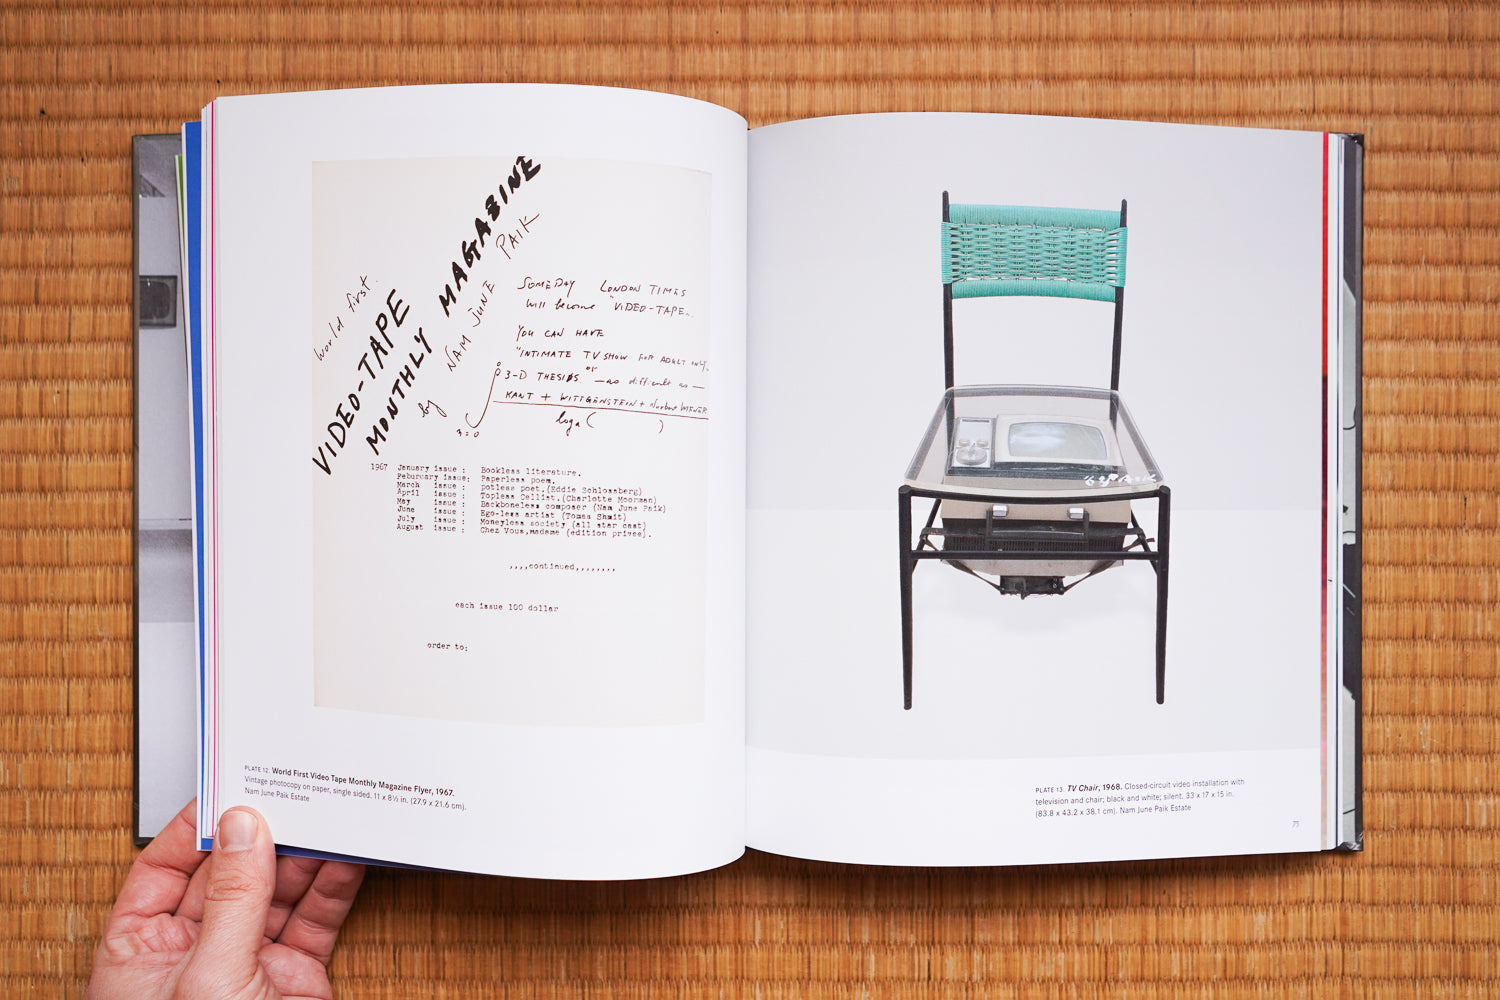 World first
VIDEO-TAPE
MONTHLY MAGAZINE
by NAM JUNE PAIK
SOMEDAY LONDON TIMES
will become "VIDEO-TAPE"
YOU CAN HAVE
"INTIMATE TV SHOW FOR ADULT ONLY"
or
3-D THESIS. — as difficult as —
KANT + WITTGENSTEIN + Norbert WIENER
log ( )
1967 January issue : Bookless literature.
Feburuary issue: Paperless poem.
March issue : potless poet.(Eddie Schlossberg)
April issue : Topless Cellist.(Charlotte Moorman)
May issue : Backboneless composer (Nam June Paik)
June issue : Ego-less artist (Tomas Shmit)
July issue : Moneyless society (all star cast)
August issue : Chez Vous,madame (edition privee).
,,,,continued,,,,,,,,
each issue 100 dollar
order to:
PLATE 12. World First Video Tape Monthly Magazine Flyer, 1967.
Vintage photocopy on paper, single sided. 11 x 8½ in. (27.9 x 21.6 cm).
Nam June Paik Estate
PLATE 13. TV Chair, 1968. Closed-circuit video installation with
television and chair; black and white; silent. 33 x 17 x 15 in.
(83.8 x 43.2 x 38.1 cm). Nam June Paik Estate